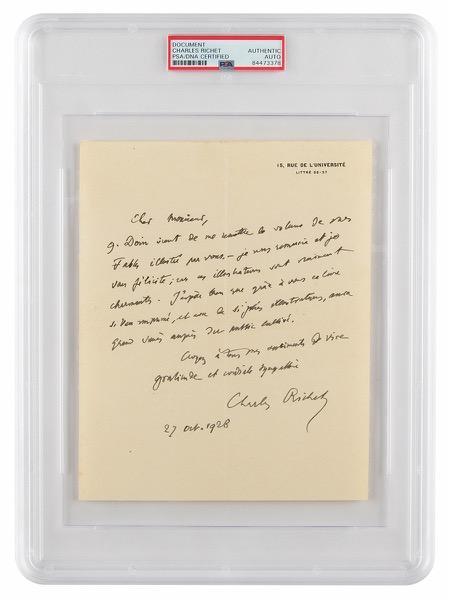 DOCUMENT
CHARLES RICHET
PSA/DNA CERTIFIED
AUTHENTIC
AUTO
84473378
PSA
15, RUE DE L'UNIVERSITÉ
LITTRÉ 56-57
Cher Monsieur,
G. Doin vient de me remettre le volume de mes
Fables illustré par vous. – je vous remercie et je
vous félicite; car ces illustrations sont vraiment
charmantes. J'espère bien que grâce à vous ce livre
si bien imprimé, et avec de si jolies illustrations, aura
grand succès auprès du public cultivé.
Croyez à tous mes sentiments de vive
gratitude et cordiale sympathie
Charles Richet
27 Oct. 1928